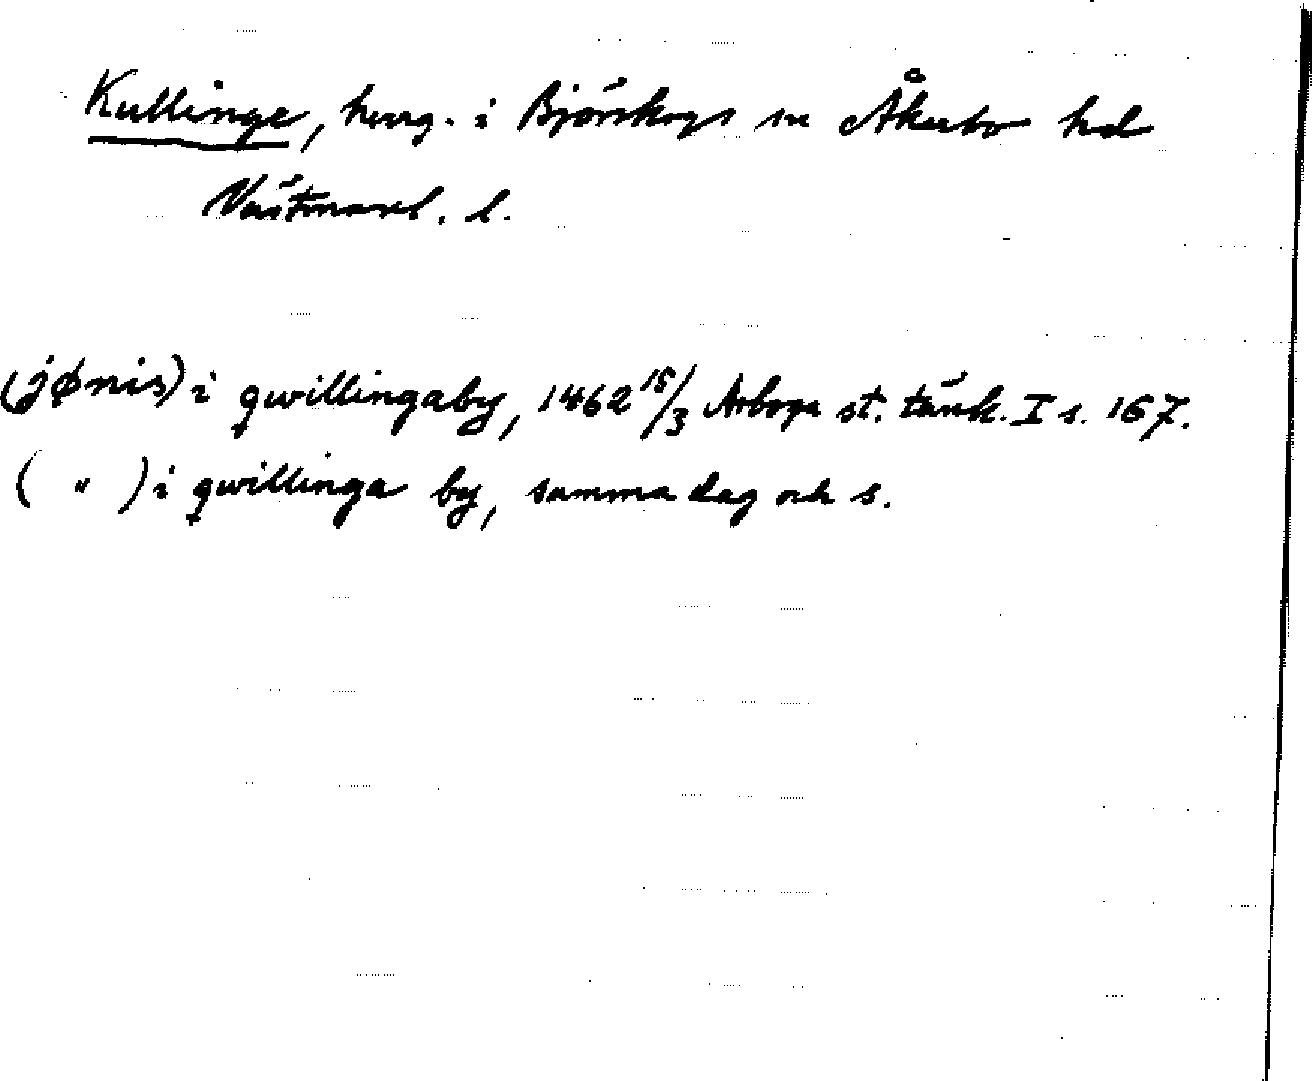 Kullinge, herrg. i Björskogs sn Åkerbo hd
Västmanl. l.
(jønis) i qwillingaby, 1462 15/3 Arboga st. tänk. I s. 167.
( " ) i qwillinga by, samma dag och s.